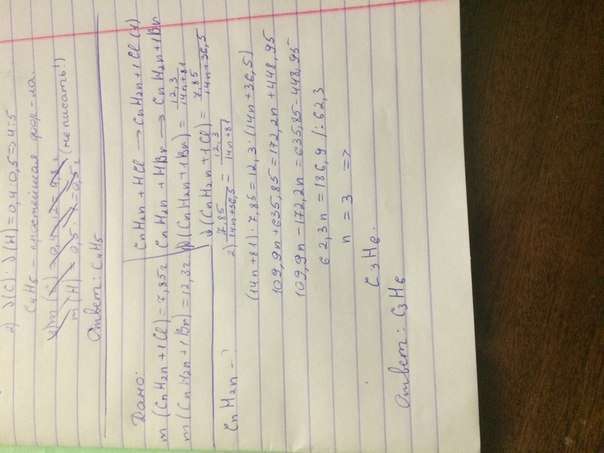 2) ν(C) : ν(H) = 0,4 : 0,5 => 4:5
C4H5 - простейшая фор-ла.
m (H) = 0,5 (не писать!)
Ответ: C4H5
Дано:
m (CnH2n+1Cl) = 7,85г
m (CnH2n+1Br) = 12,3г
CnH2n - ?
CnH2n + HCl → CnH2n+1Cl (1)
CnH2n + HBr → CnH2n+1Br
ν (CnH2n+1Br) = 12,3 / 14n+81
ν (CnH2n+1Cl) = 7,85 / 14n+36,5
2) 7,85 / 14n+36,5 = 12,3 / 14n+81
(14n+81) · 7,85 = 12,3 · (14n+36,5)
109,9n + 635,85 = 172,2n + 448,95
109,9n - 172,2n = 635,85 - 448,95
62,3n = 186,9 /: 62,3
n = 3 =>
C3H6.
Ответ: C3H6